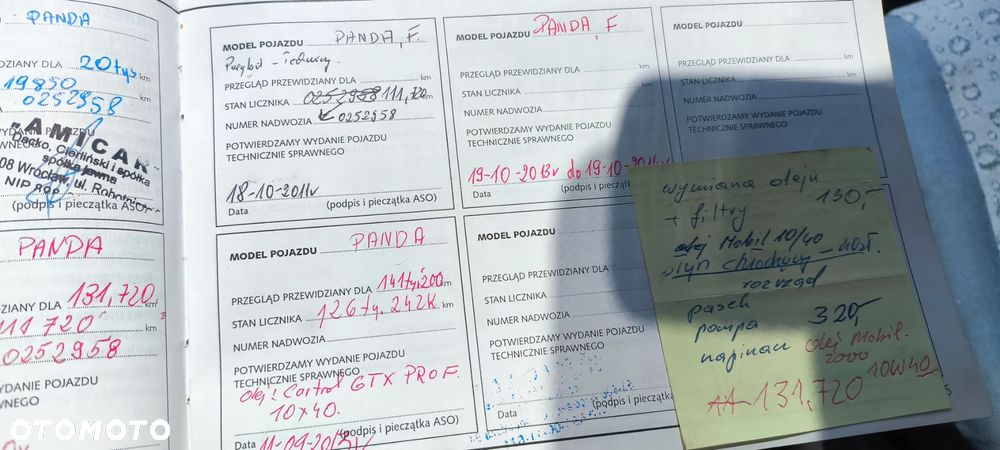 PANDA
DZIANY DLA 20tys km
19850
0252958
"AMICAR"
Decko, Cierliński i spółka
spółka jawna
08 Wrocław, ul. Robotnicza
NIP
(podpis i pieczątka ASO)
PANDA
ZIANY DLA 131,720 km
111 720
0252958
YDANIE POJAZDU
WNEGO
MODEL POJAZDU PANDA, F.
Przegląd - Techniczny.
PRZEGLĄD PRZEWIDZIANY DLA km
STAN LICZNIKA 0252958 111,720 km
NUMER NADWOZIA 0252958
POTWIERDZAMY WYDANIE POJAZDU
TECHNICZNIE SPRAWNEGO
18-10-2011r
Data (podpis i pieczątka ASO)
MODEL POJAZDU PANDA
PRZEGLĄD PRZEWIDZIANY DLA 141ty,200 km
STAN LICZNIKA 126ty. 242K km
NUMER NADWOZIA
POTWIERDZAMY WYDANIE POJAZDU
TECHNICZNIE SPRAWNEGO
olej! Castrol GTX PROF.
10x40.
(podpis i pieczątka ASO)
Data 11-09-2013r
MODEL POJAZDU PANDA, F
PRZEGLĄD PRZEWIDZIANY DLA km
STAN LICZNIKA km
NUMER NADWOZIA
POTWIERDZAMY WYDANIE POJAZDU
TECHNICZNIE SPRAWNEGO
19-10-2013r do 19-10-201
Data (podpis i pieczątka ASO)
MODEL POJAZDU
PRZEGLĄD PRZEWIDZIANY
STAN LICZNIKA
NUMER NADWOZIA
POTWIERDZAMY WYDANIE POJAZDU
TECHNICZNIE SPRAWNEGO
Data (podpis i pieczątka
MODEL POJAZDU
PRZEGLĄD PRZEWIDZIANY DLA km
STAN LICZNIKA km
NUMER NADWOZIA
POTWIERDZAMY WYDANIE POJAZDU
TECHNICZNIE SPRAWNEGO
wymiana oleju
+ filtry 130,-
olej Mobil 10/40
płyn chłodniczy - 40zł.
rozrząd
pasek
pompa 320,-
napinacz olej Mobil.
2000 10W40
131,720
OTOMOTO